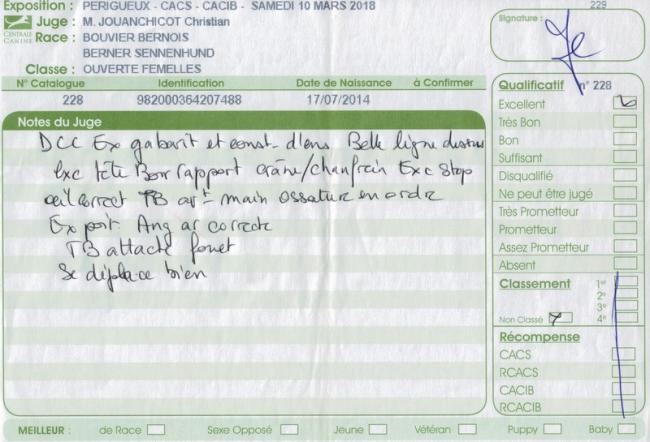 Exposition : PERIGUEUX - CACS - CACIB - SAMEDI 10 MARS 2018
229
CENTRALE CANINE
Juge : M. JOUANCHICOT Christian
Race : BOUVIER BERNOIS
BERNER SENNENHUND
Classe : OUVERTE FEMELLES
Signature :
N° Catalogue Identification Date de Naissance à Confirmer
228 982000364207488 17/07/2014
Notes du Juge
DCC Ex gabarit et const- d'ens Belle ligne dessus
Exc tête Bon rapport crâne/chanfrein Exc Stop
œil correct TB av- main ossature en ordre
Ex port- Ang ar correcte
TB attaché fouet
Se déplace bien
Qualificatif n° 228
Excellent
Très Bon
Bon
Suffisant
Disqualifié
Ne peut être jugé
Très Prometteur
Prometteur
Assez Prometteur
Absent
Classement 1er
2e
3e
Non Classé 4e
Récompense
CACS
RCACS
CACIB
RCACIB
MEILLEUR : de Race Sexe Opposé Jeune Vétéran Puppy Baby